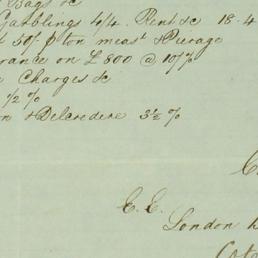 Bags &c
Garblings 4/4. Rent &c 18.4
50/- p ton meast & Pierage
rance on £800 @ 10/7%
Charges &c
1/2 %
n & Delcredere 3½ %
E. E.
London